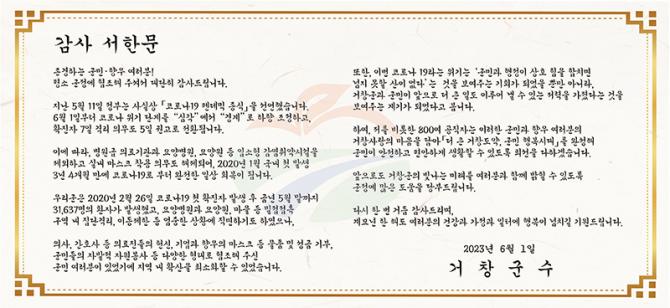 감사 서한문
존경하는 군민·향우 여러분!
평소 군정에 협조해 주셔서 대단히 감사드립니다.
지난 5월 11일 정부는 사실상 「코로나19 팬데믹 종식」을 선언했습니다.
6월 1일부터 코로나 위기 단계를 "심각"에서 "경계"로 하향 조정하고,
확진자 7일 격리 의무도 5일 권고로 전환됩니다.
이에 따라, 병원급 의료기관과 요양병원, 요양원 등 일소형 감염취약시설을
제외하고 실내 마스크 착용 의무도 해제되어, 2020년 1월 국내 첫 발생
3년 4개월 만에 코로나19로 부터 완전한 일상 회복이 됩니다.
우리군은 2020년 2월 26일 코로나19 첫 확진자 발생 후 금년 5월 말까지
31,637명의 환자가 발생했고, 요양병원과 요양원, 마을 등 밀접접촉
구역 내 집단격리, 이동제한 등 엄중한 상황에 직면하기도 하였으나,
의사, 간호사 등 의료진들의 헌신, 기업과 향우의 마스크 등 물품 및 성금 기부,
군민들의 자발적 자원봉사 등 다양한 형태로 협조해 주신
군민 여러분이 있었기에 지역 내 확산을 최소화할 수 있었습니다.
또한, 이번 코로나 19라는 위기는 '군민과 행정이 상호 힘을 합치면
넘지 못할 산이 없다'는 것을 보여주는 기회가 되었을 뿐만 아니라,
거창군과 군민이 앞으로 더 큰 일도 이루어 낼 수 있는 저력을 가졌다는 것을
보여주는 계기가 되었다고 봅니다.
하여, 저를 비롯한 800여 공직자는 이러한 군민과 향우 여러분의
거창사랑의 마음을 담아 「더 큰 거창도약, 군민 행복시대」를 완성하여
군민이 안전하고 편안하게 생활할 수 있도록 최선을 다하겠습니다.
앞으로도 거창군의 빛나는 미래를 여러분과 함께 펼칠 수 있도록
군정에 많은 도움을 당부드립니다.
다시 한 번 거듭 감사드리며,
계묘년 한 해도 여러분의 건강과 가정과 일터에 행복이 넘치길 기원드립니다.
2023년 6월 1일
거 창 군 수